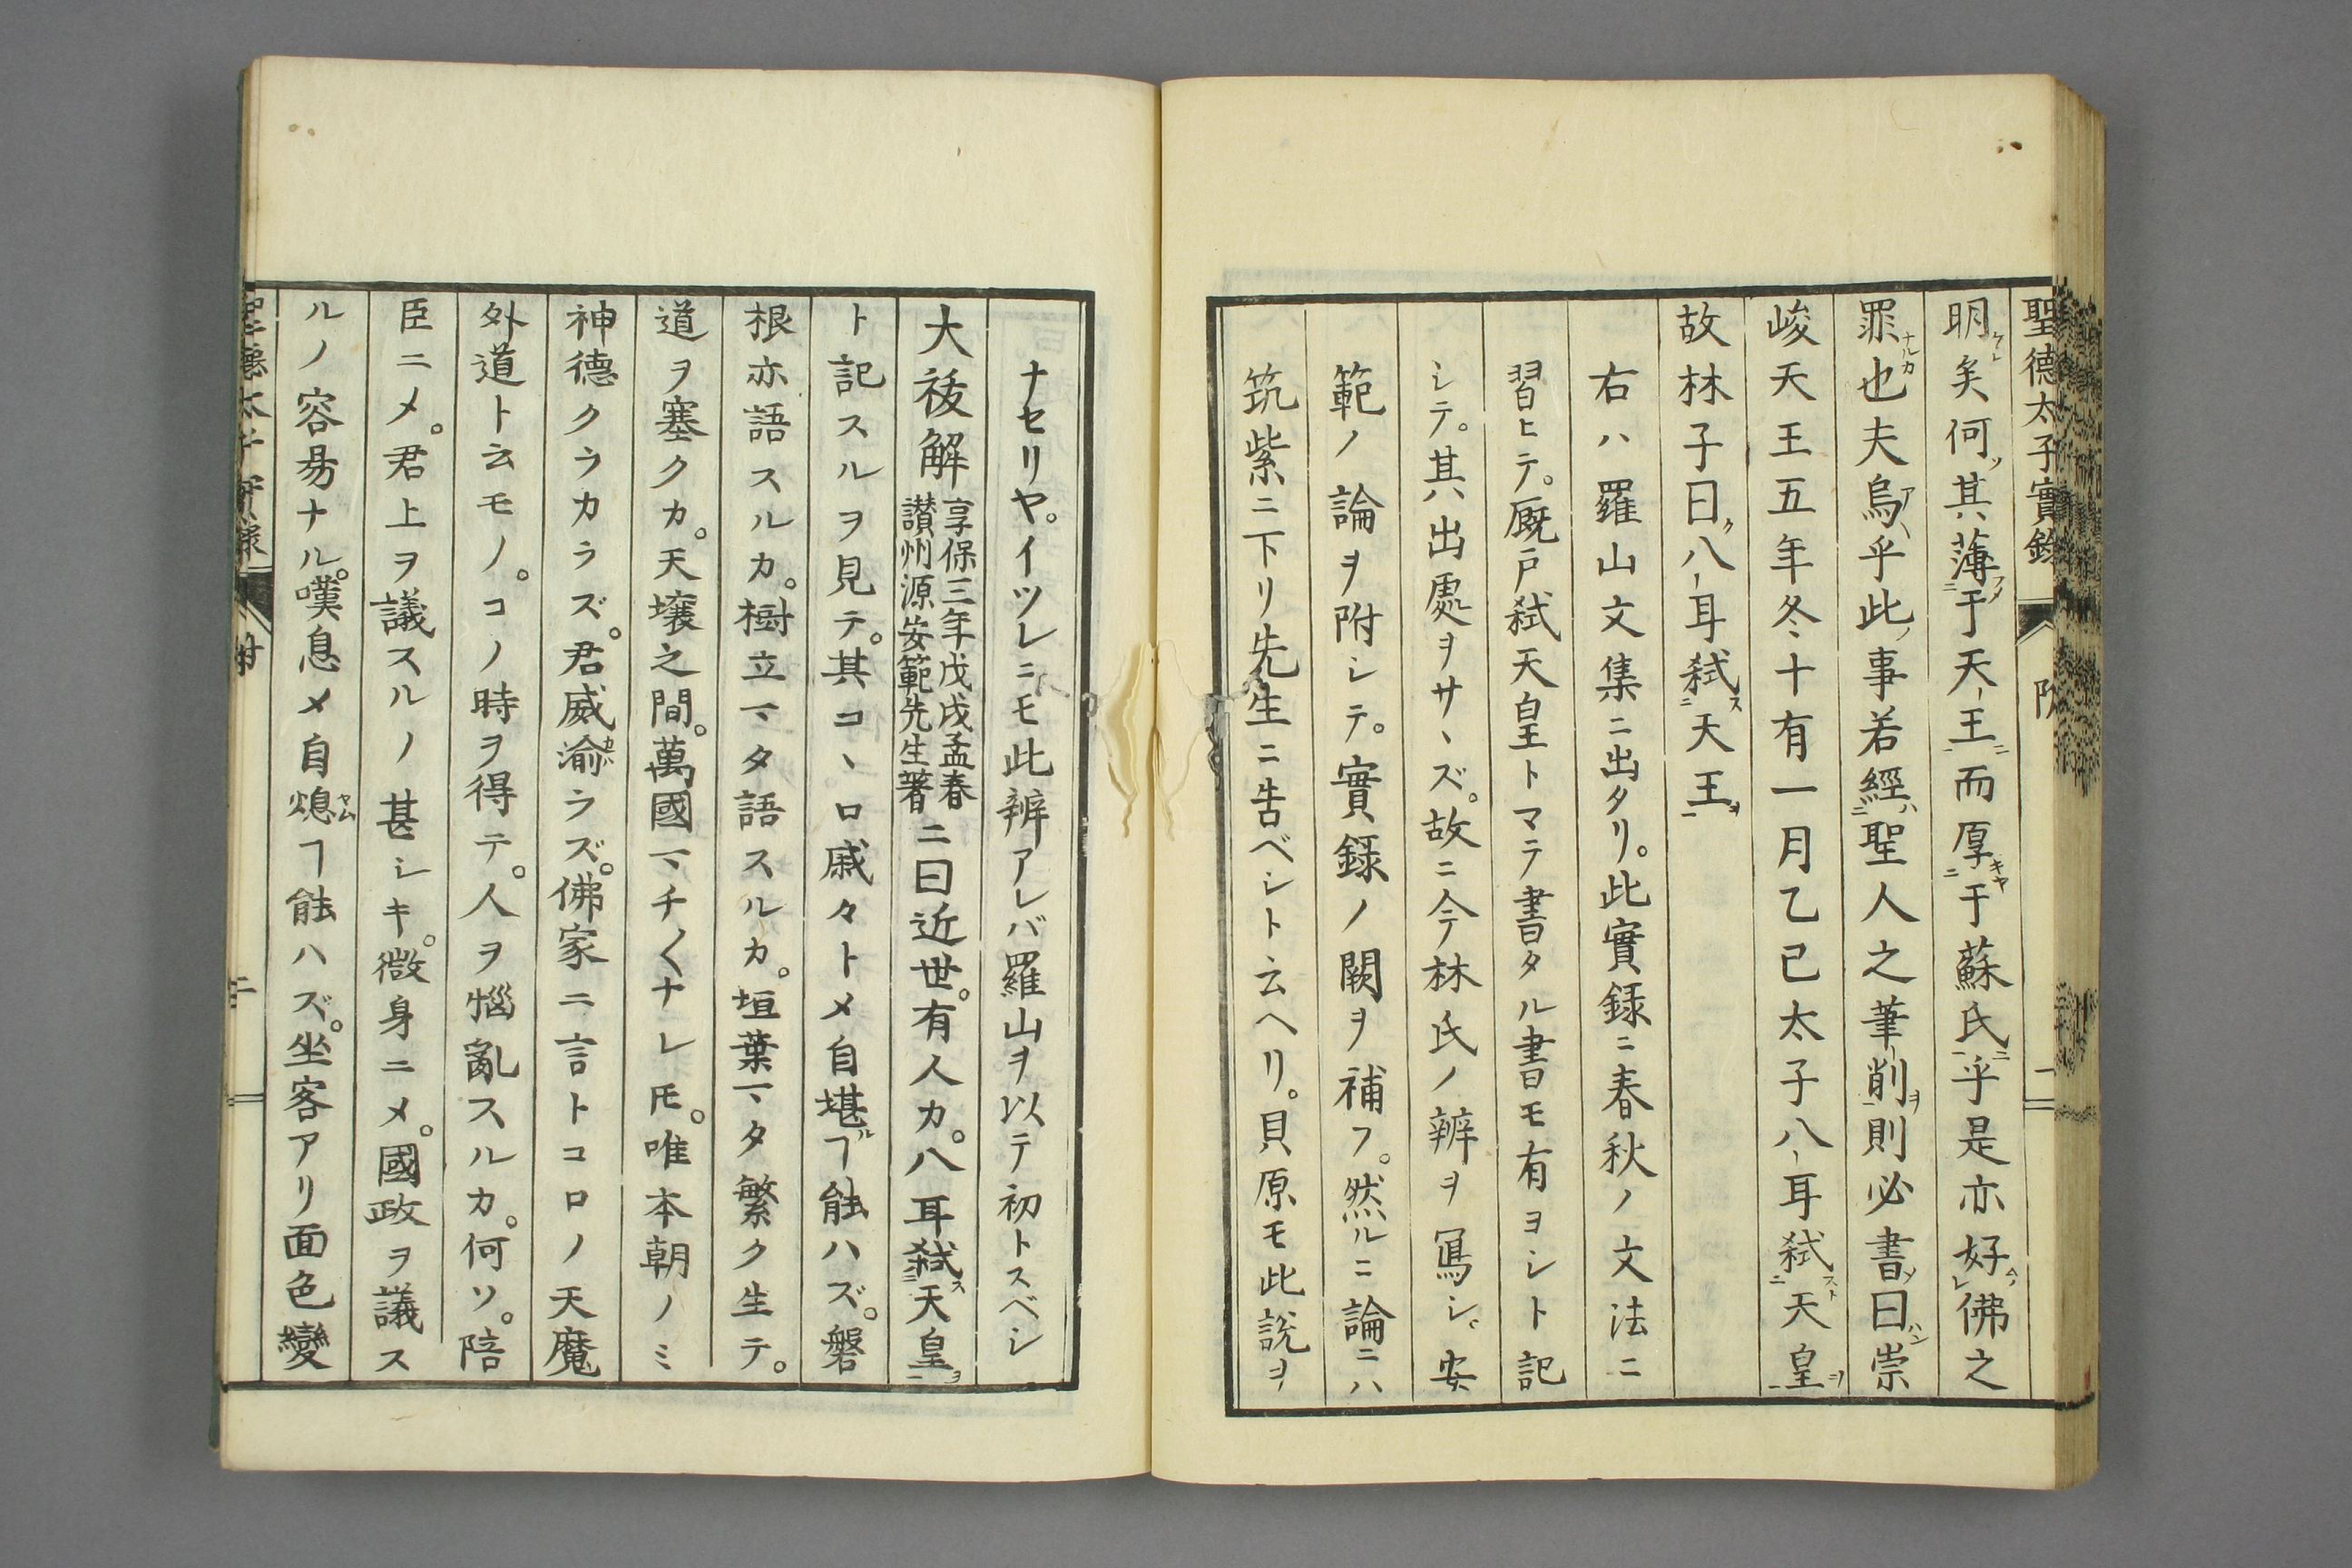 聖德太子實錄
明矣何其薄于天王而厚于蘇氏乎是亦好佛之
罪也夫烏乎此事若經聖人之筆削則必書曰崇
峻天王五年冬十有一月乙巳太子八耳弑天皇
故林子曰八耳弑天王
右ハ羅山文集ニ出タリ。此實録ニ春秋ノ文法ニ
習ヒテ。厩戸弑天皇トマテ書タル書モ有ヨシト記
シテ。其出處ヲサヽズ。故ニ今林氏ノ辨ヲ寫シ。安
範ノ論ヲ附シテ。實録ノ闕ヲ補フ。然ルニ論ニハ
筑紫ニ下リ先生ニ告ベシト云ヘリ。貝原モ此説ヲ
ナセリヤ。イツレニモ此辨アレバ羅山ヲ以テ初トスベシ
大祓解 享保三年戊戌孟春讃州源安範先生著 ニ曰近世。有人カ。八耳弑天皇
ト記スルヲ見テ。其コヽロ戚々トメ自堪ルヿ能ハズ。磐
根亦語スルカ。樹立マタ語スルカ。垣葉マタ繁ク生テ。
道ヲ塞クカ。天壤之間。萬國マチ〱ナレ𪜈。唯本朝ノミ
神德クラカラズ。君威渝ラズ。佛家ニ言トコロノ天魔
外道ト云モノ。コノ時ヲ得テ。人ヲ惱亂スルカ。何ソ。陪
臣ニメ。君上ヲ議スルノ甚シキ。微身ニメ。國政ヲ議ス
ルノ容易ナル。嘆息メ自熄ヿ能ハズ。坐客アリ面色變